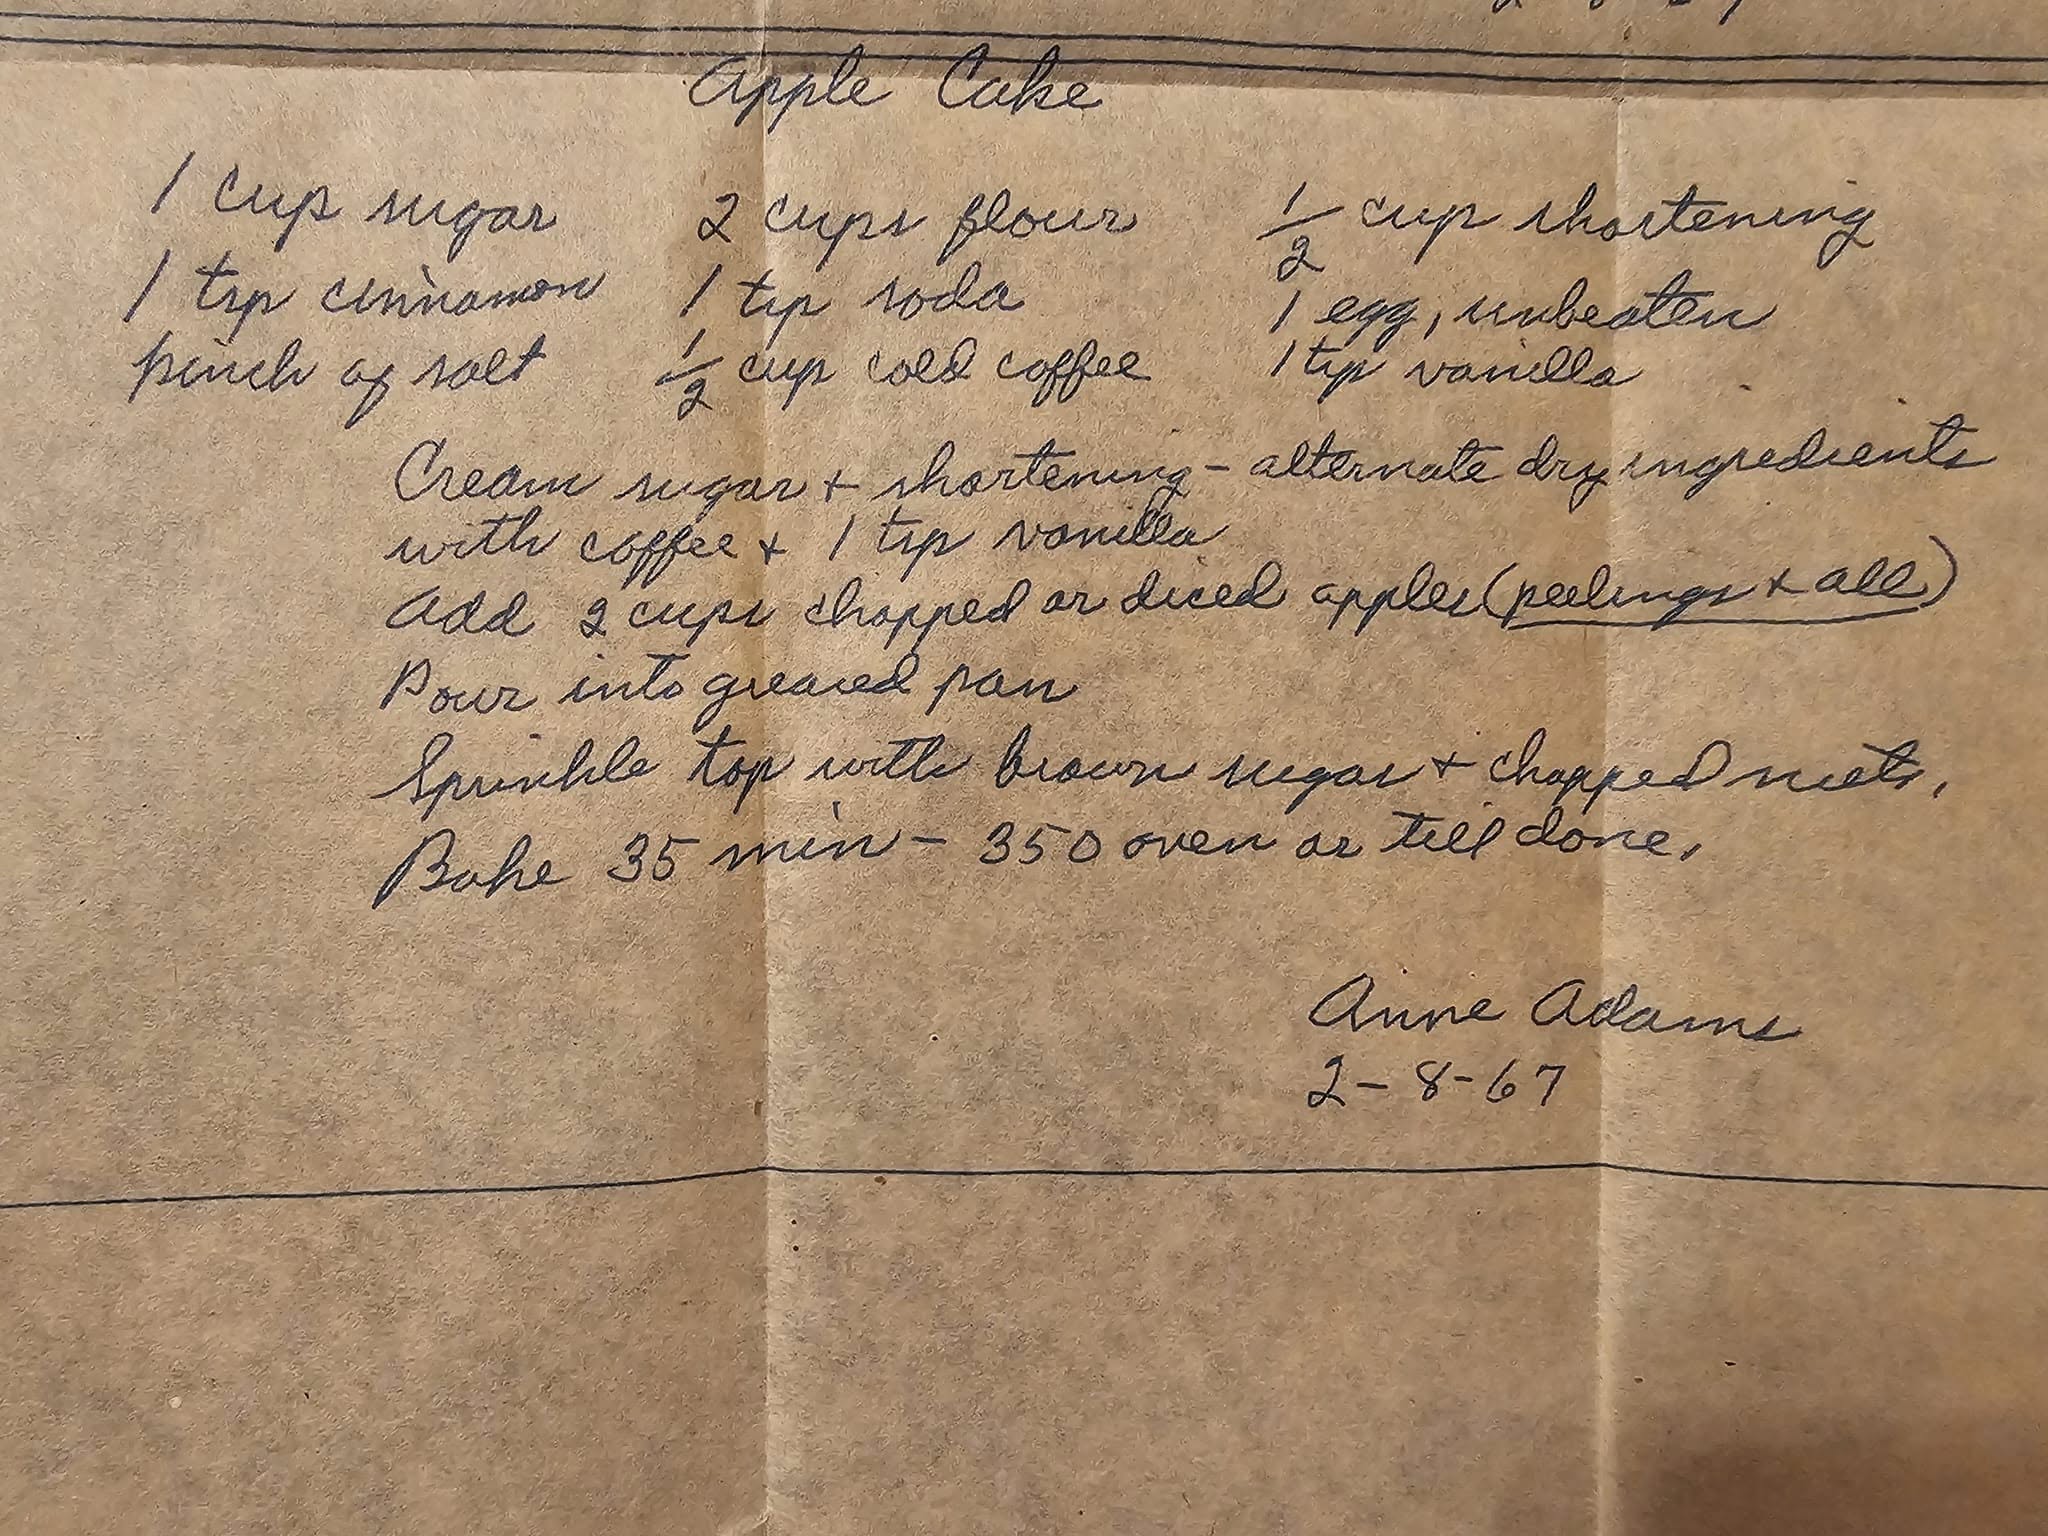 Apple Cake
1 cup sugar 2 cups flour 1/2 cup shortening
1 tsp cinnamon 1 tsp soda 1 egg, unbeaten
pinch of salt 1/2 cup cold coffee 1 tsp vanilla
Cream sugar + shortening - alternate dry ingredients
with coffee + 1 tsp vanilla
Add 2 cups chopped or diced apples (peelings + all)
Pour into greased pan
Sprinkle top with brown sugar + chopped nuts.
Bake 35 min - 350 oven or till done.
Anne Adams
2-8-67